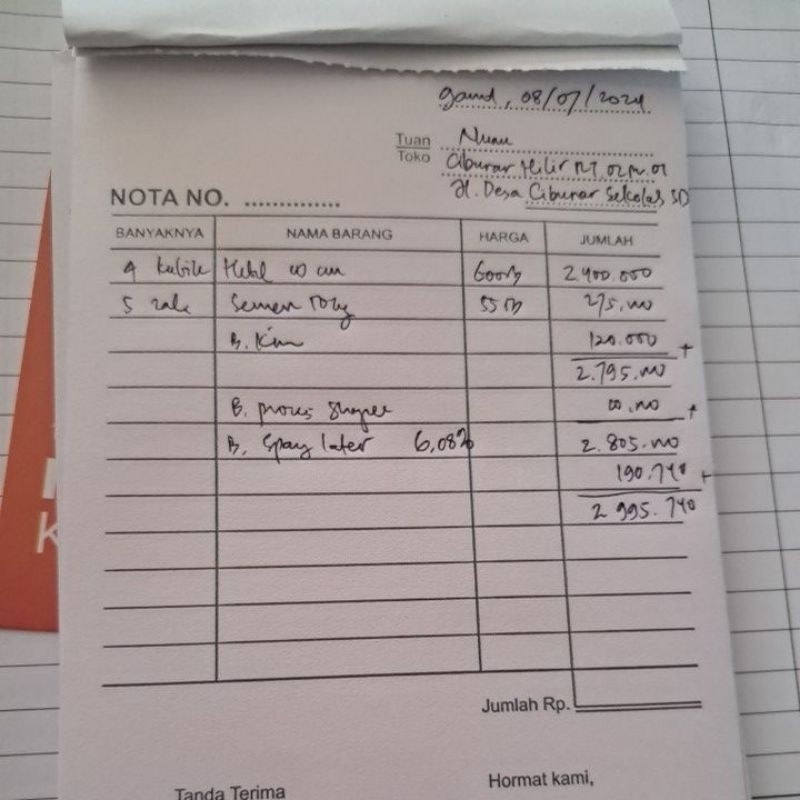 08/07/2024
Tuan
Toko
Ciburar Hilir RT.02 RW.01
Jl. Desa Ciburar Sekolah SD
NOTA NO. ..............
BANYAKNYA NAMA BARANG HARGA JUMLAH
4 Hebel 10 cm 600rb 2.400.000
5 zak Semen 55rb 275.000
B. Kirim 120.000 +
2.795.000
B. proses Shopee 10.000 +
B. Spay later 6,08% 2.805.000
190.740 +
2.995.740
Jumlah Rp.
Tanda Terima Hormat kami,
K